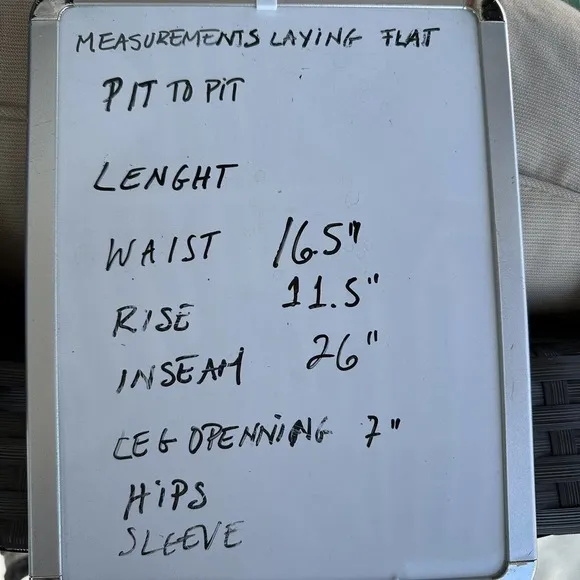 MEASUREMENTS LAYING FLAT
PIT TO PIT
LENGHT
WAIST 16.5"
RISE 11.5"
INSEAM 26"
LEG OPENNING 7"
HIPS
SLEEVE